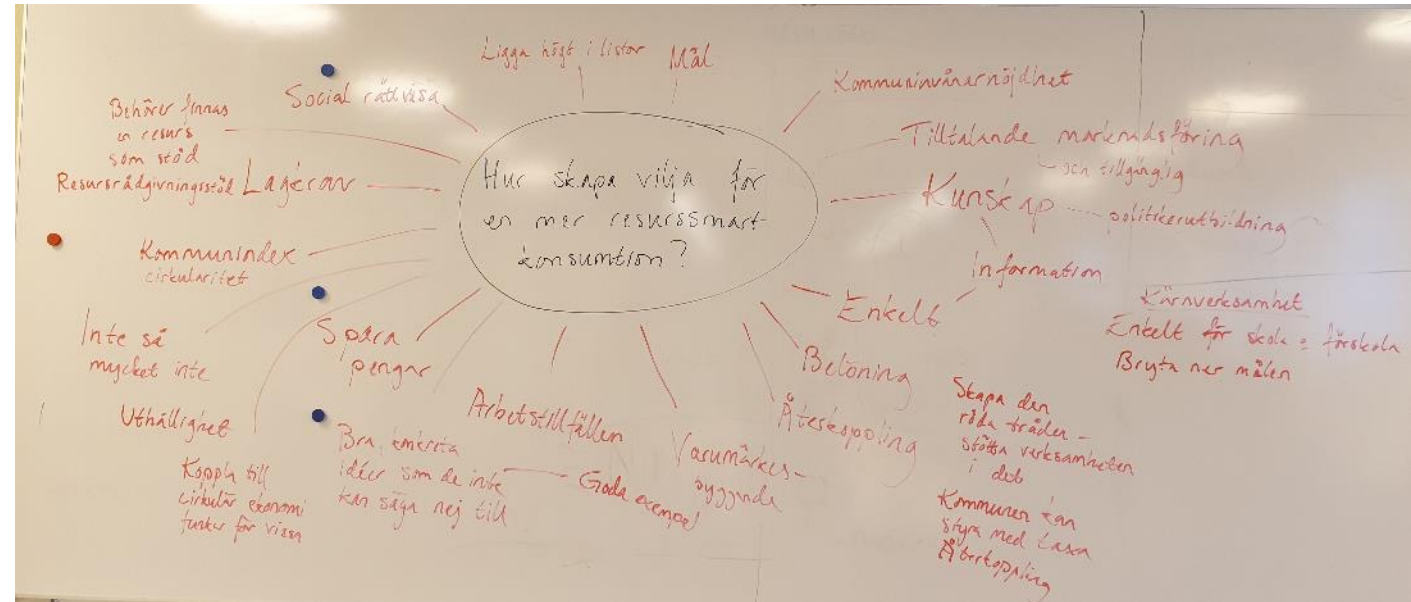 Hur skapa vilja för
en mer resurssmart
konsumtion?
Ligga högt i listor
Mål
Kommuninvånarnöjdhet
Tilltalande marknadsföring
och tillgänglig
Kunskap
politikerutbildning
Information
Enkelt
Kärnverksamhet
Enkelt för skola o förskola
Bryta ner målen
Belöning
Återkoppling
Skapa den
röda tråden –
stötta verksamheten
i det
Kommunen kan
styra med taxa
Återkoppling
Varumärkes-
byggande
Arbetstillfällen
Bra, konkreta
idéer som de inte
kan säga nej till
Goda exempel
Spara
pengar
Uthållighet
Koppla till
cirkulär ekonomi
funkar för vissa
Inte så
mycket inte
Kommunindex
cirkularitet
Lagkrav
Resursrådgivningsstöd
Behöver finnas
en resurs
som stöd
Social rättvisa